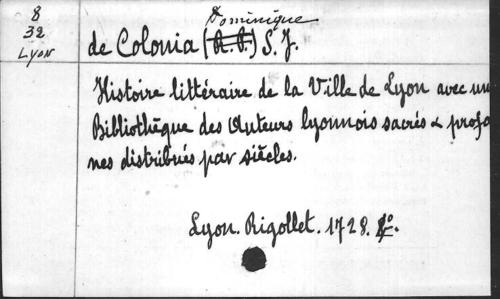 8
32
Lyon
Dominique
de Colonia (R. P.) S. J.
Histoire littéraire de la Ville de Lyon avec un
Bibliothèque des Auteurs lyonnois sacrés & profa
nes distribués par siècles.
Lyon. Rigollet. 1728.